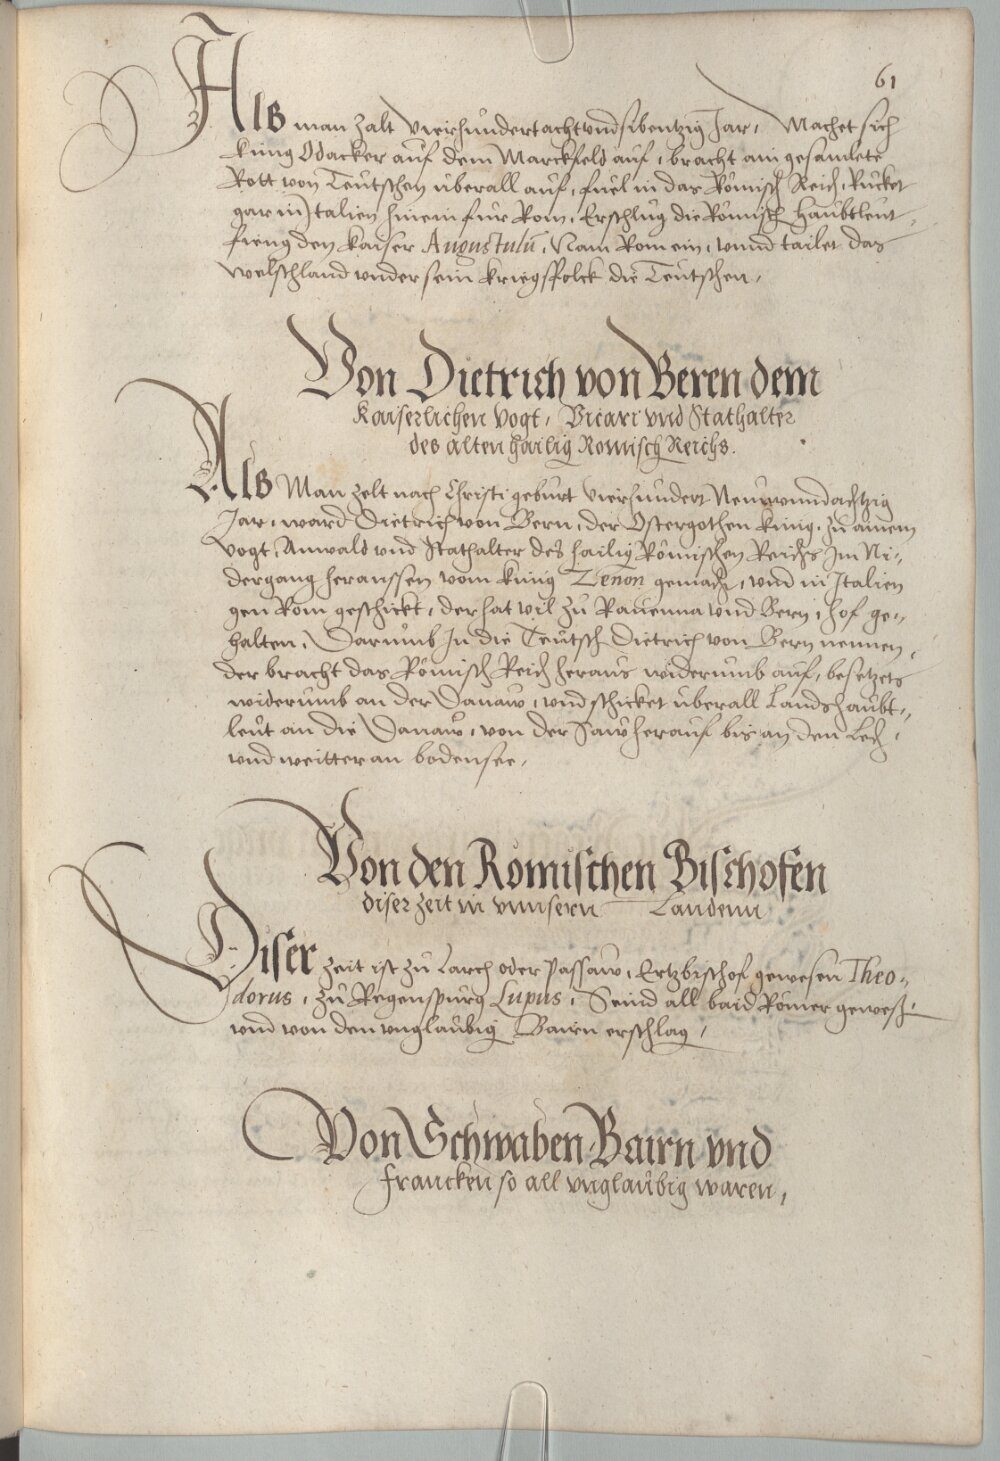 61
Als man zalt vierhundertachtundsibentzig Jar, Machet sich
künig Odacker auf dem Marckfeld auf, bracht ain gesamlete
Rott von Teütschen überall auf, fiel in das Römisch Reich, Rucket
gar in Italien hinein für Rom, Erschlug die Römisch Haubtleut,
fieng den kaiser Augustulu, Nam Rom ein, vnnd tailet das
Welschland vnder sein kriegsfolck die Teütschen,
Von Dietrich von Beren dem
Kaiserlichen Vogt, Vicari vnd Stathalter
des alten hailig Romisch Reichs.
Als Man zelt nach Christi geburt vierhundert Neunvnndachtzig
Jar, ward Dietrich von Bern, der Ostergothen künig, zu ainem
Vogt, Anwald vnd Stathalter des hailig Römischen Reichs Im Ni-
dergang heraussen vom künig Zenon gemacht, vnd in Italien
gen Rom geschickt, der hat vil zu Rauenna vnd Bern, hof ge-
halten, Darumb In die Teutsch Dietrich von Bern nennen,
der bracht das Römisch Reich heraus widerumb auf, besetzets
widerumb an der Danaw, vnd schicket überall Landshaubt-
leut an die Danaw, von der Saw herauf bis an den Lech,
vnd weitter an bodensee,
Von den Römischen Bischofen
diser zeit in vnnsern Landenn
Diser zeit ist zu Larch oder Passaw, Ertzbischof gewesen Theo-
dorus, zu Regenspurg Lupus, Seind all baid Römer gewest,
vnd von den vnglaubig Bairn erschlag,
Von Schwaben Bairn vnd
Francken so all vnglaubig waren,